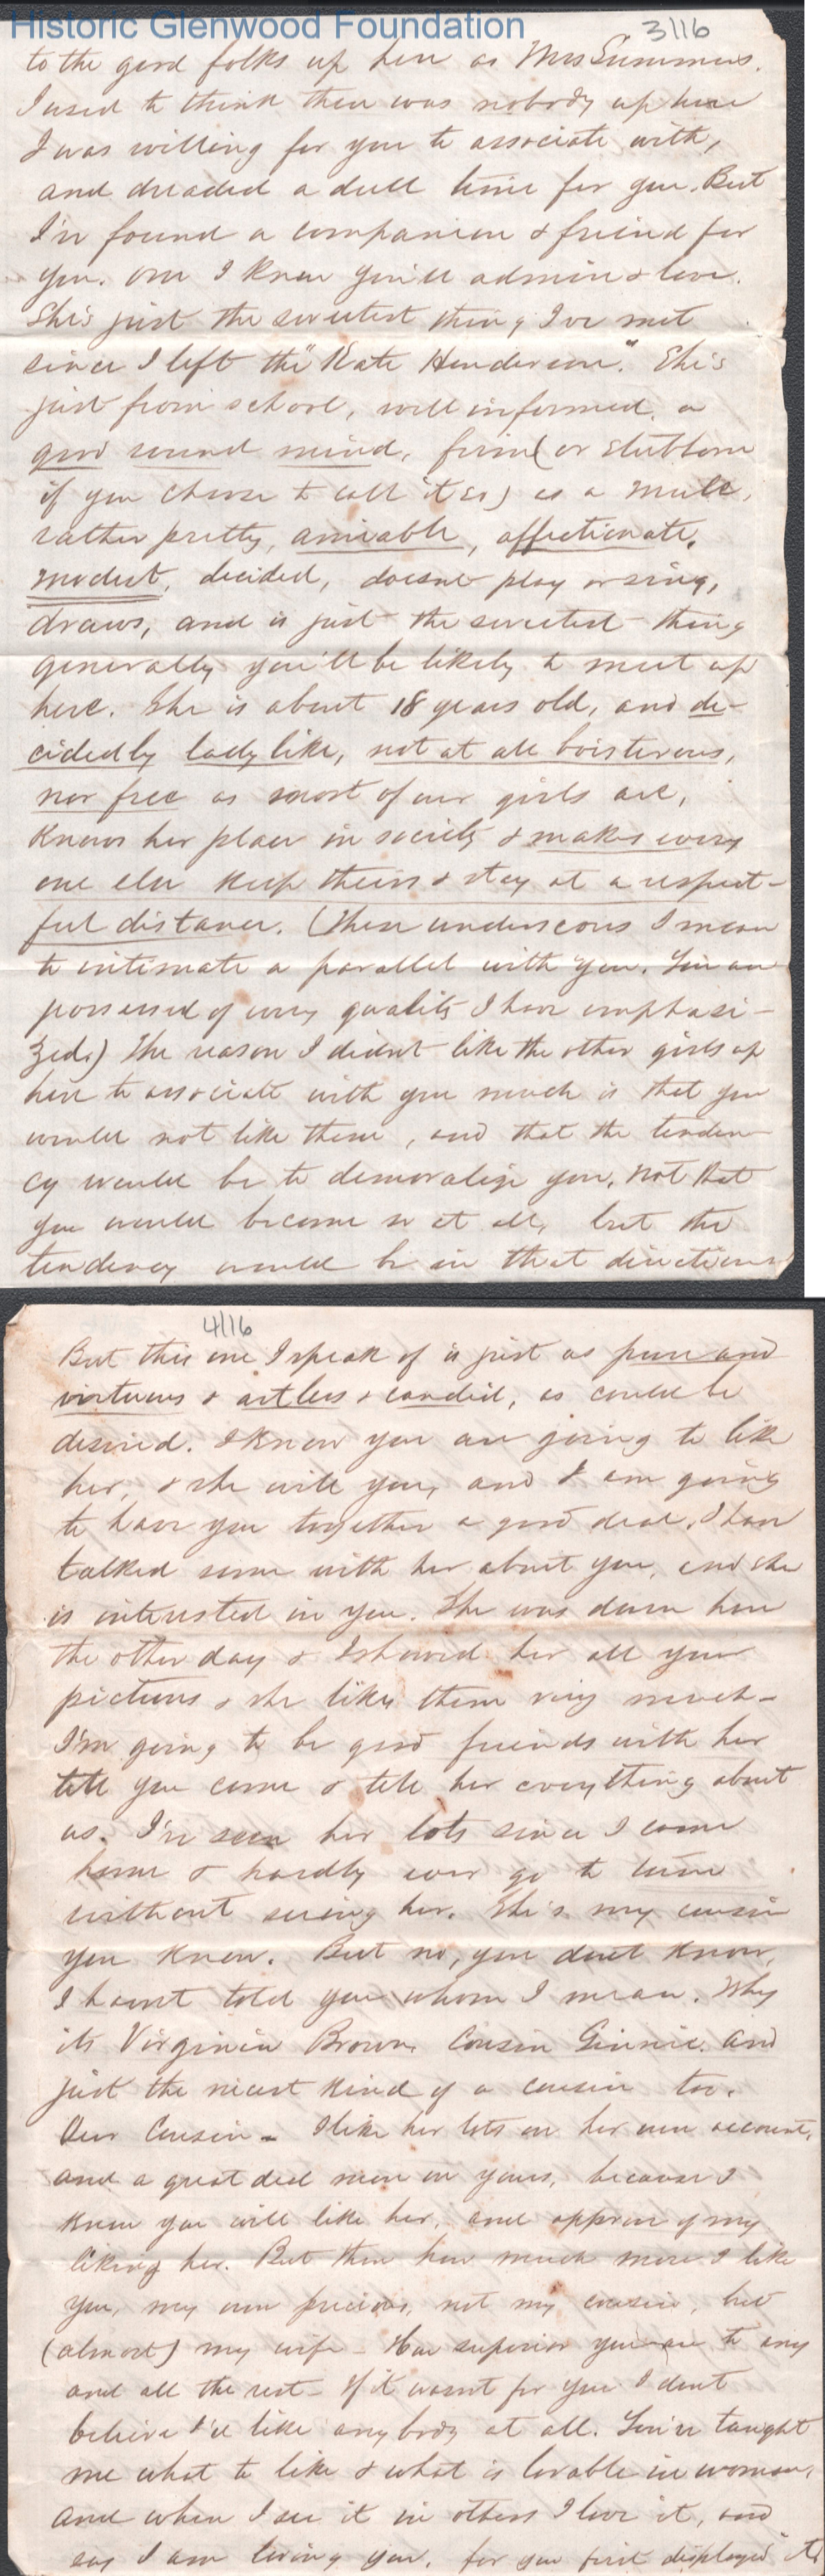 Historic Glenwood Foundation
3/16
to the good folks up here as Mrs Summers.
I used to think there was nobody up here
I was willing for you to associate with,
and dreaded a dull time for you. But
I've found a companion & friend for
you. one I know you'll admire & love.
She's just the sweetest thing I've met
since I left the "Kate Henderson". She's
just from school, well informed, a
good sound mind, firm (or stubborn
if you choose to call it so) as a mule,
rather pretty, amiable, affectionate,
modest, decided, doesnt play or sing,
draws, and is just the sweetest thing
generally you'll be likely to meet up
here. She is about 18 years old, and de-
cidedly lady like, not at all boisterous,
nor free as most of our girls are,
Knows her place in society & makes every
one else keep theirs & stay at a respect-
ful distance. (These underscores I mean
to intimate a parallel with you. You are
possessed of every quality I have emphasi-
zed.) The reason I didnt like the other girls up
here to associate with you much is that you
would not like them, and that the tenden
cy would be to demoralize you, not that
you would become so at all, but the
tendency would be in that direction
4/16
But this one I speak of is just as pure and
virtuous & artless & candid, as could be
desired. I know you are going to like
her, & she will you, and I am going
to have you together a good deal. I have
talked some with her about you, and she
is interested in you. She was down here
the other day & I showed her all your
pictures & she likes them very much-
I'm going to be good friends with her
till you come & tell her everything about
us. I've seen her lots since I came
home & hardly ever go to town
without seeing her. She's my cousin
you know. But no, you dont know,
I havnt told you whom I mean. Why
its Virginia Brown, Cousin Ginnie. and
just the nicest kind of a cousin too.
Our Cousin - I like her lots on her own account,
and a great deal more on yours, because I
know you will like her, and approve of my
liking her. But then how much more I like
you, my own precious, not my cousin, but
(almost) my wife - How superior you are to any
and all the rest - If it wasnt for you I dont
believe I'd like anybody at all. You've taught
me what to like & what is lovable in woman,
and when I see it in others I love it, and
say I am loving you, for you first displayed it